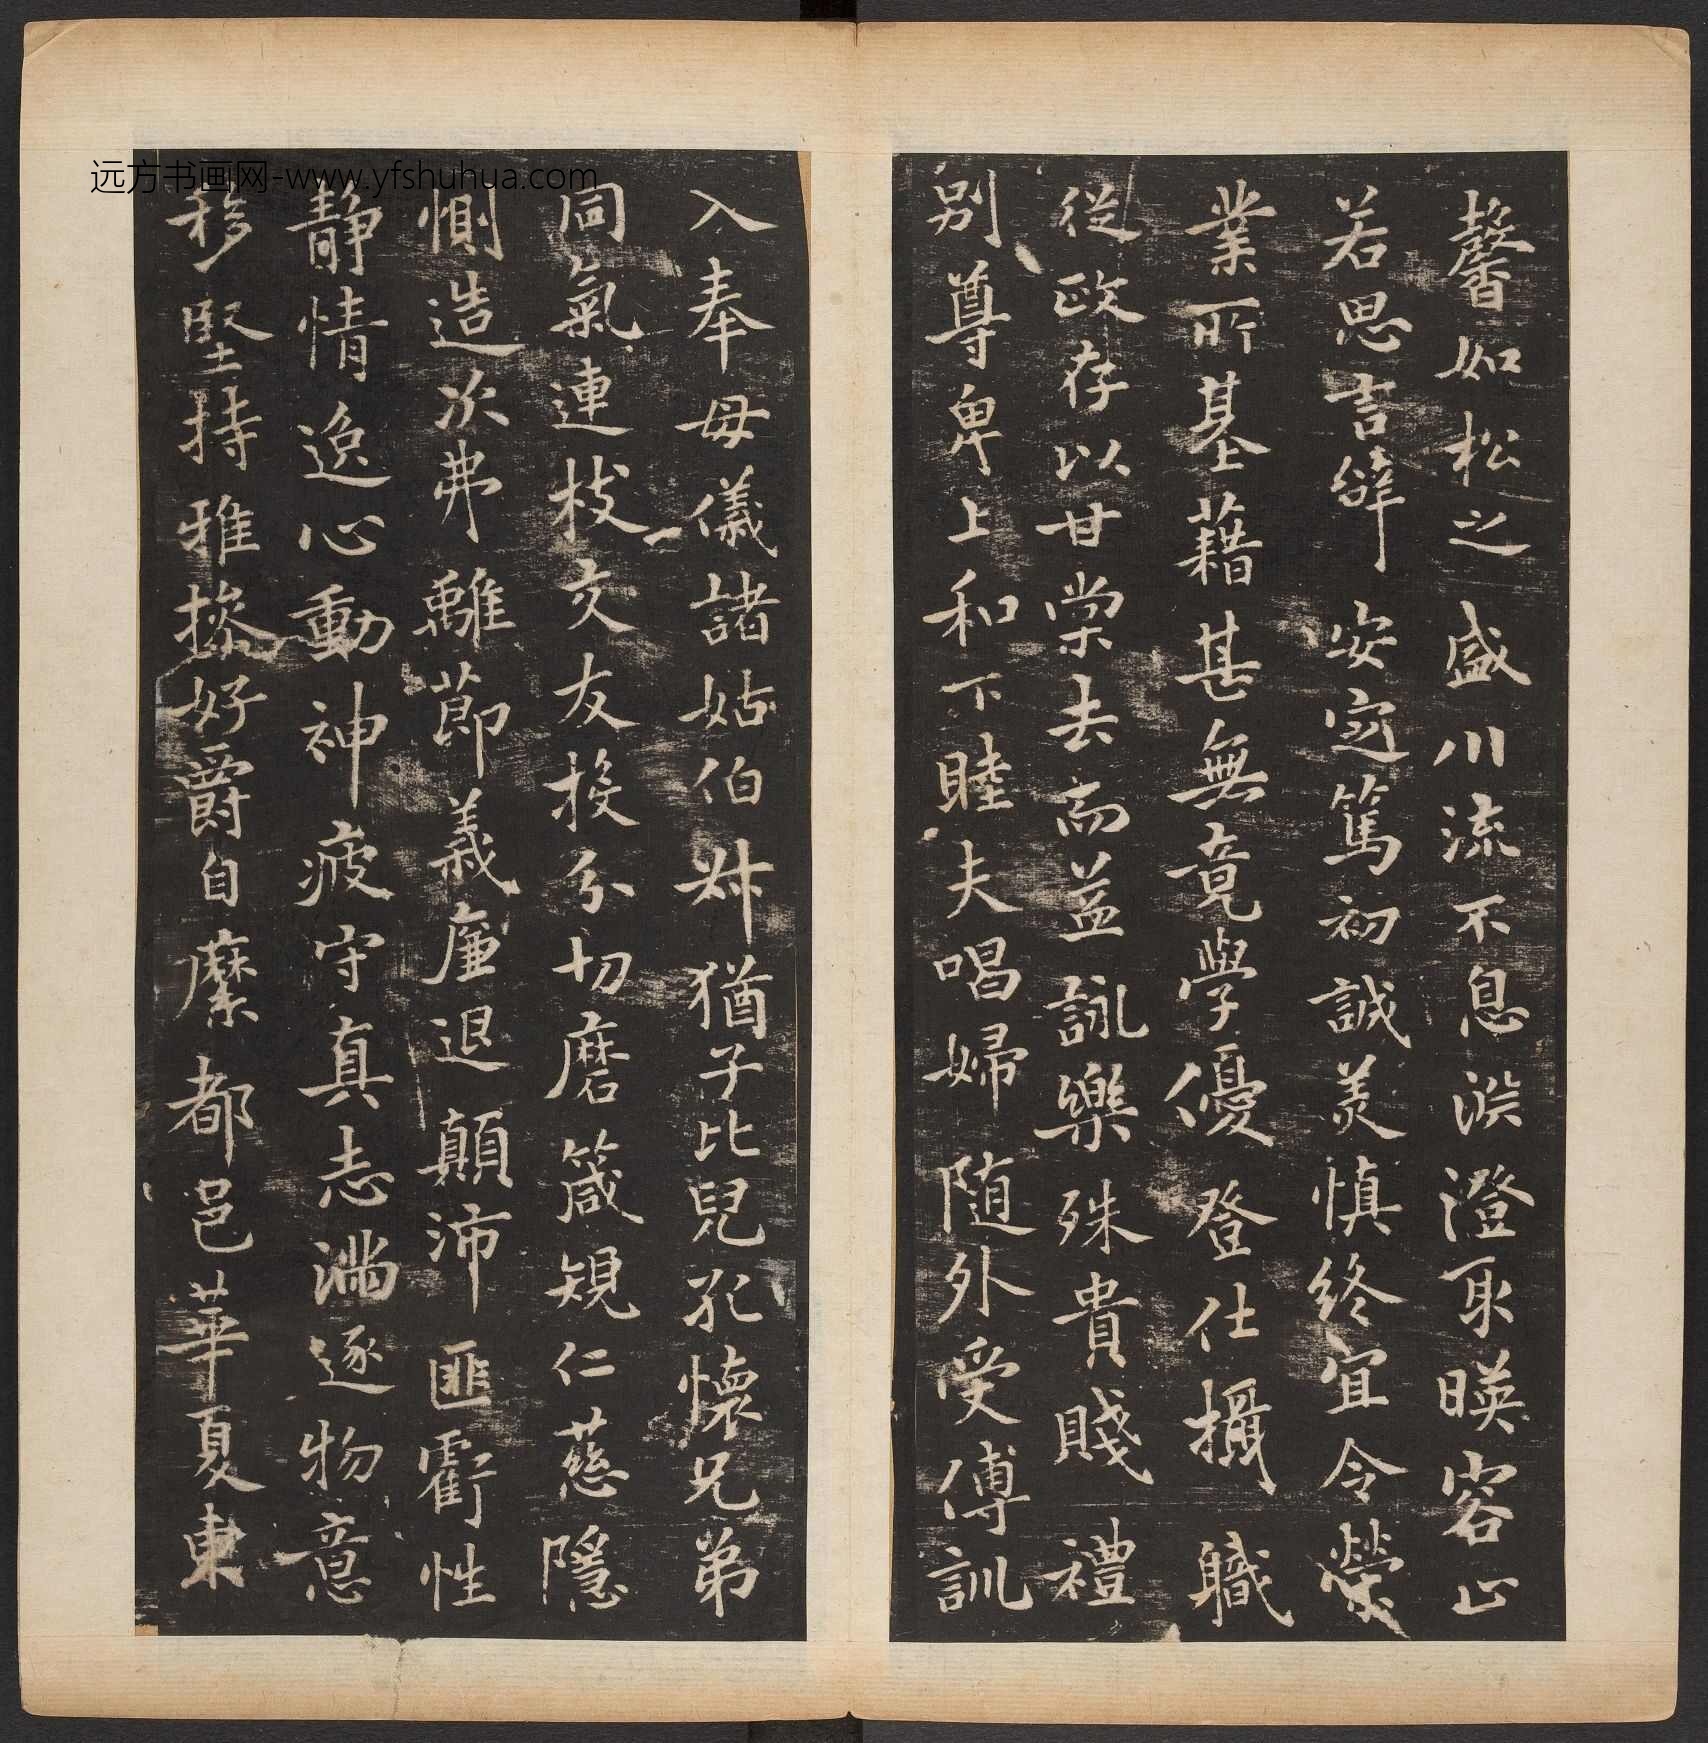 远方书画网-www.yfshuhua.com
馨如松之盛川流不息淵澄取暎容止
若思言辭安定篤初誠美慎終宜令榮
業所基藉甚無竟學優登仕攝職
從政存以甘棠去而益詠樂殊貴賤禮
別尊卑上和下睦夫唱婦随外受傅訓
入奉母儀諸姑伯叔猶子比兒孔懷兄弟
同氣連枝交友投分切磨箴規仁慈隱
惻造次弗離節義廉退顛沛匪虧性
靜情逸心動神疲守真志滿逐物意
移堅持雅操好爵自縻都邑華夏東